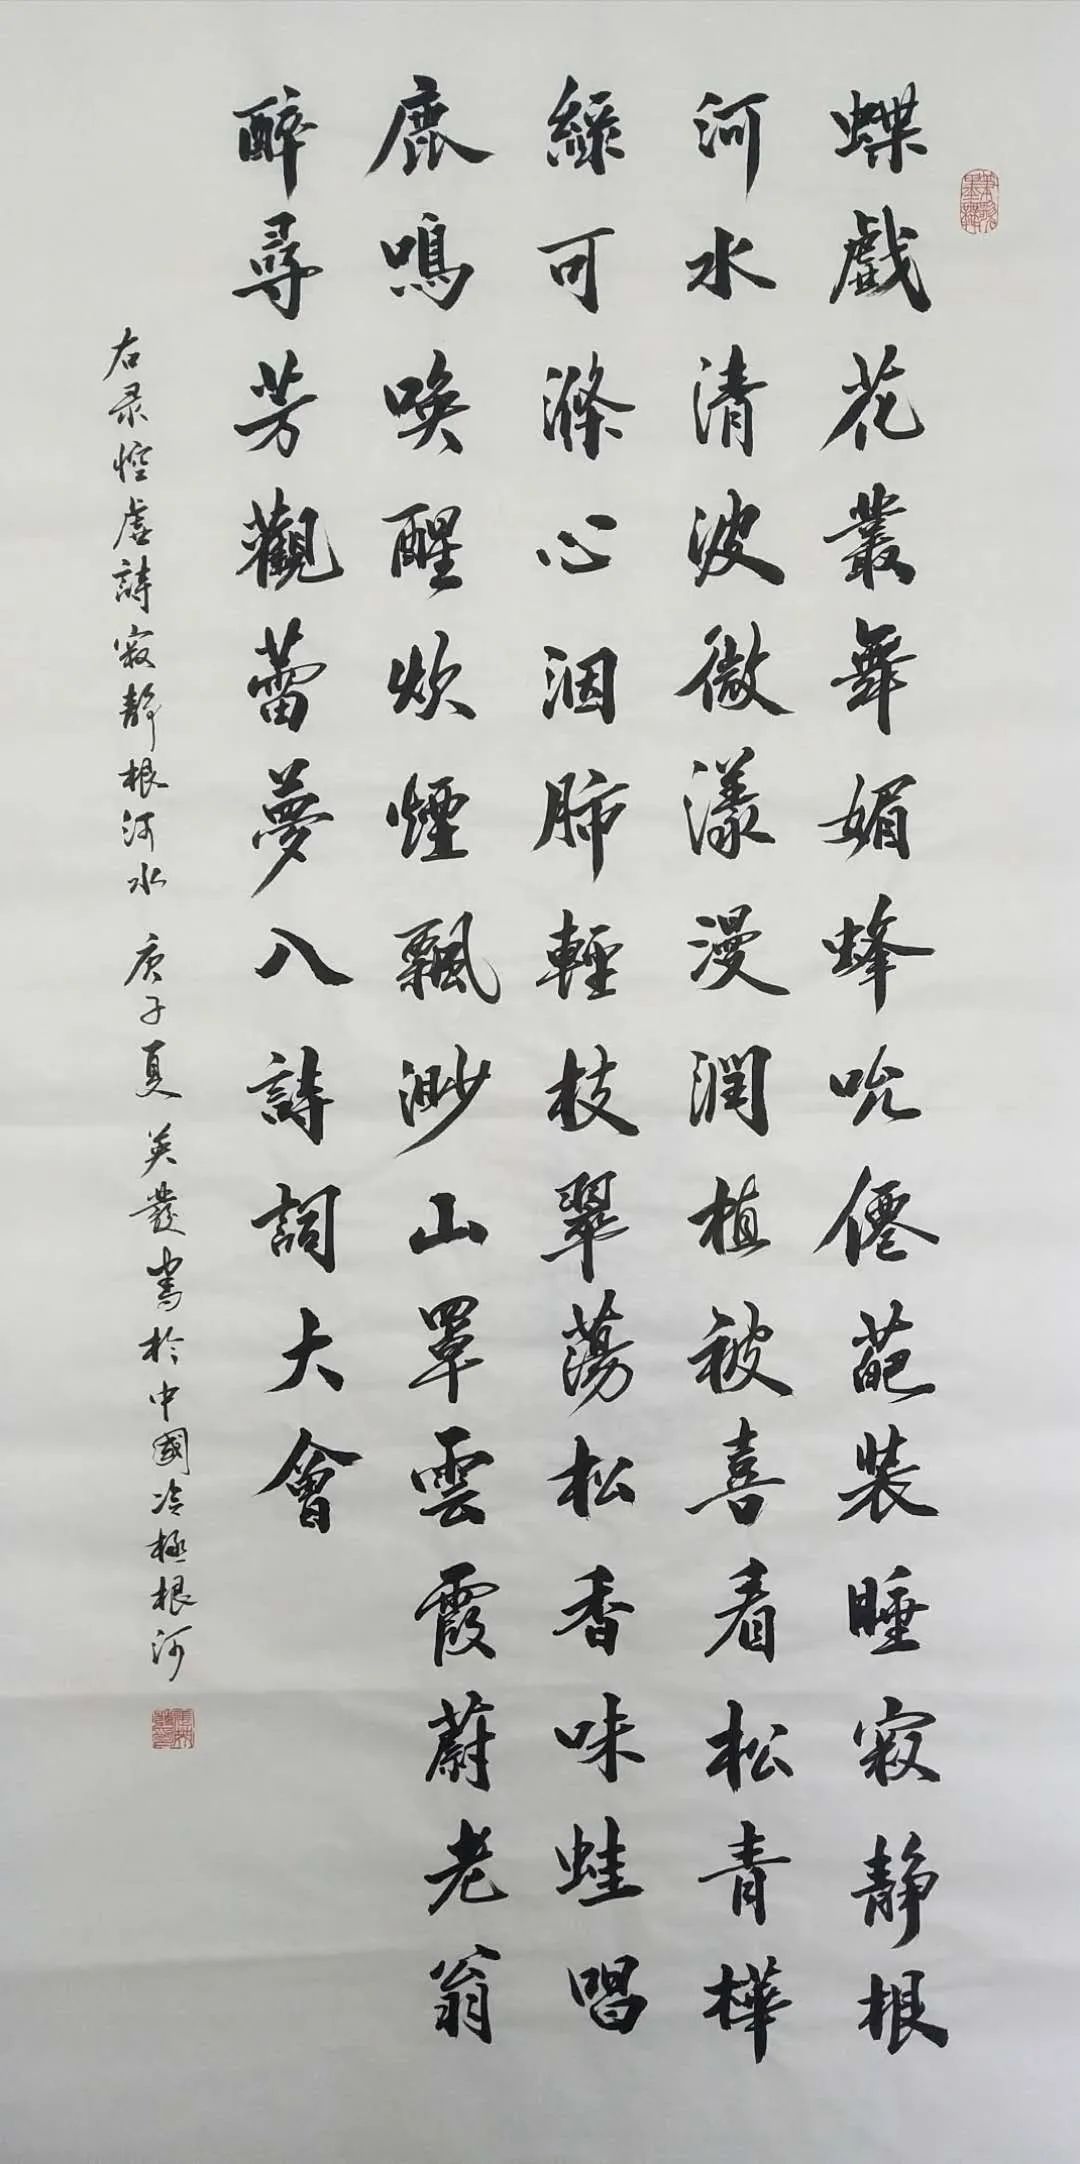 蝶戲花叢舞媚蜂吮僊葩裝睡寂靜根
河水清波微漾漫潤植被喜看松青樺
綠可滌心洇肺輕枝翠蕩松香味蛙唱
鹿鳴喚醒炊煙飄渺山罩雲霞蔚老翁
醉尋芳觀蕾夢入詩詞大會
右录悾虚詩寂静根河水 庚子夏 英發書於中國冷極根河